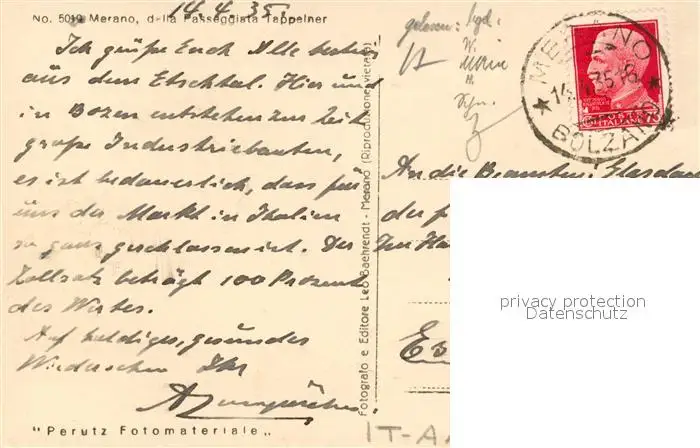 14.4.35.
No. 5019 Merano, della Passeggiata Tappeiner
Ich grüße Euch Alle bestens
aus dem Etschtal. Hier und
in Bozen entstehen zur Zeit
große Industriebauten,
es ist bedauerlich, dass für
uns der Markt in Italien
so ganz geschlossen ist. Der
Zollsatz beträgt 100 Prozent
des Wertes.
Auf baldiges, gesundes
Wiedersehen Ihr
"Perutz Fotomateriale"
Fotografo e Editore Leo Baehrendt - Merano (Riproduzione vietata)
gelesen:
MERANO
14.35.18
BOLZANO
ITALIANE
An die Beamten
der
privacy protection
Datenschutz
IT-A